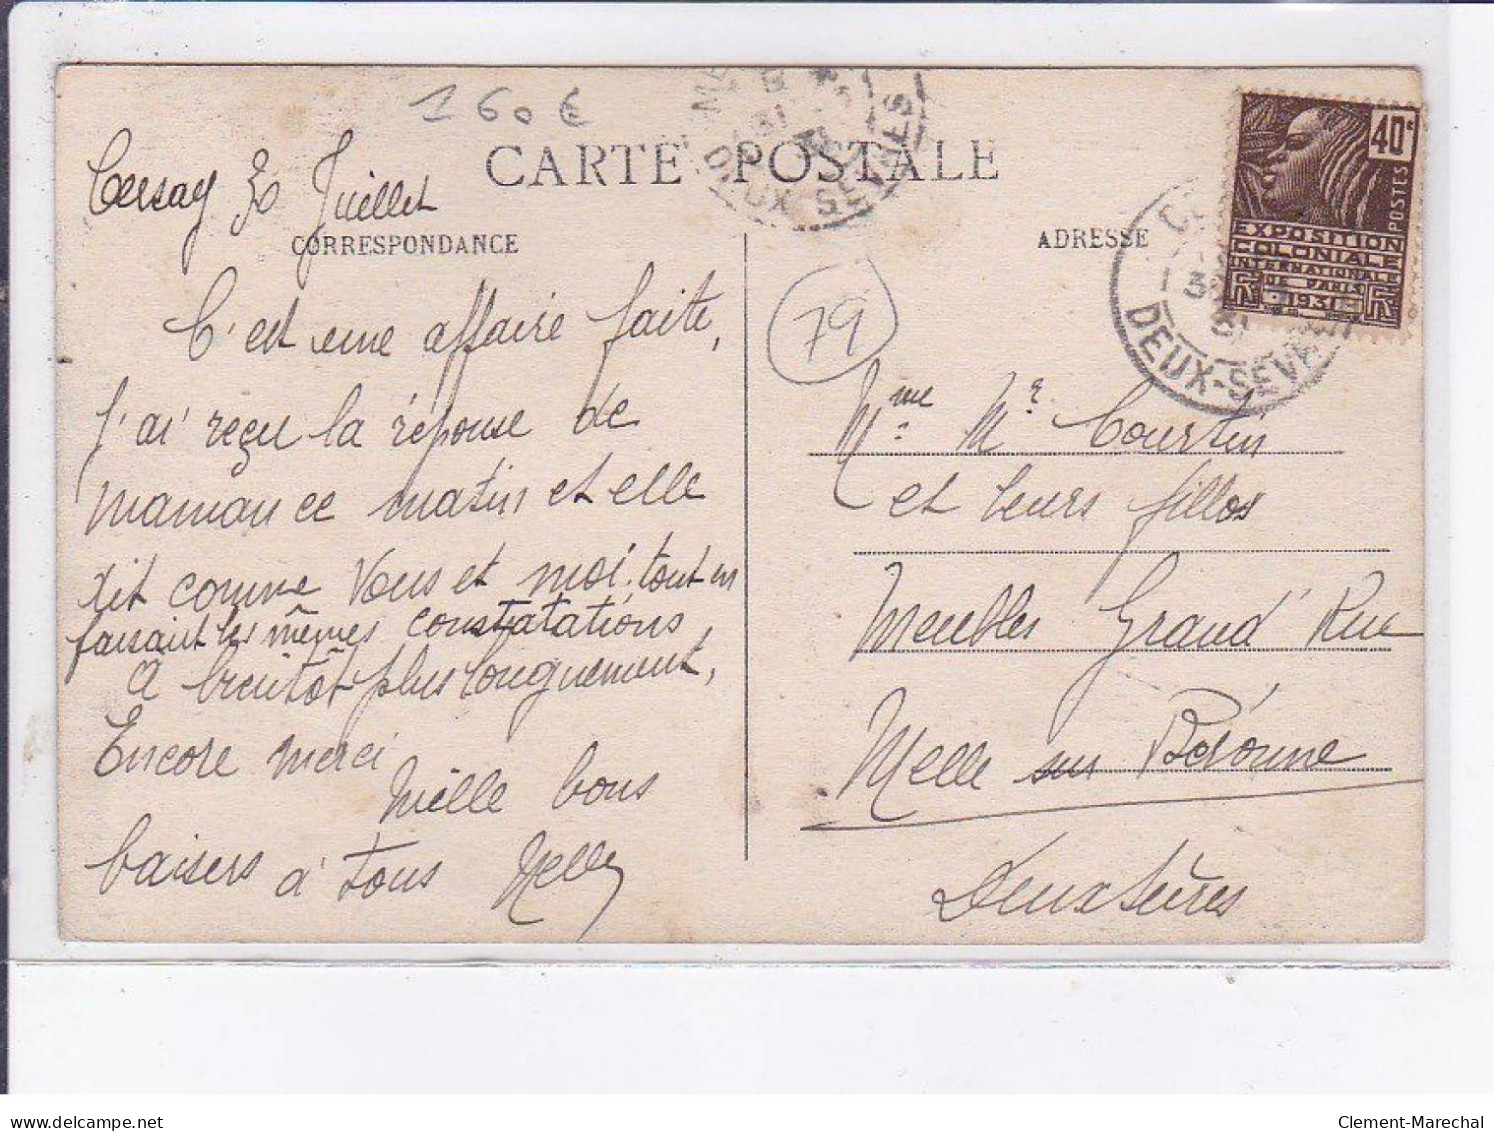 160€
CARTE POSTALE
Cersay 30 Juillet
CORRESPONDANCE
C'est une affaire faite,
j'ai reçu la réponse de
maman ce matin et elle
dit comme vous et moi. tout en
faisant les mêmes constatations
A bientôt plus longuement,
Encore merci
Mille bons
baisers à tous Nelly
ME
DEUX-SEVRES
79
ADRESSE
Mme Mr Courtin
et leurs filles
Meubles Grand' Rue
Melle sur Béronne
Deux Sèvres
40c
POSTES
EXPOSITION
COLONIALE
INTERNATIONALE
DE PARIS
1931
DEUX-SEVRES
31
delcampe.net
Clement-Marechal